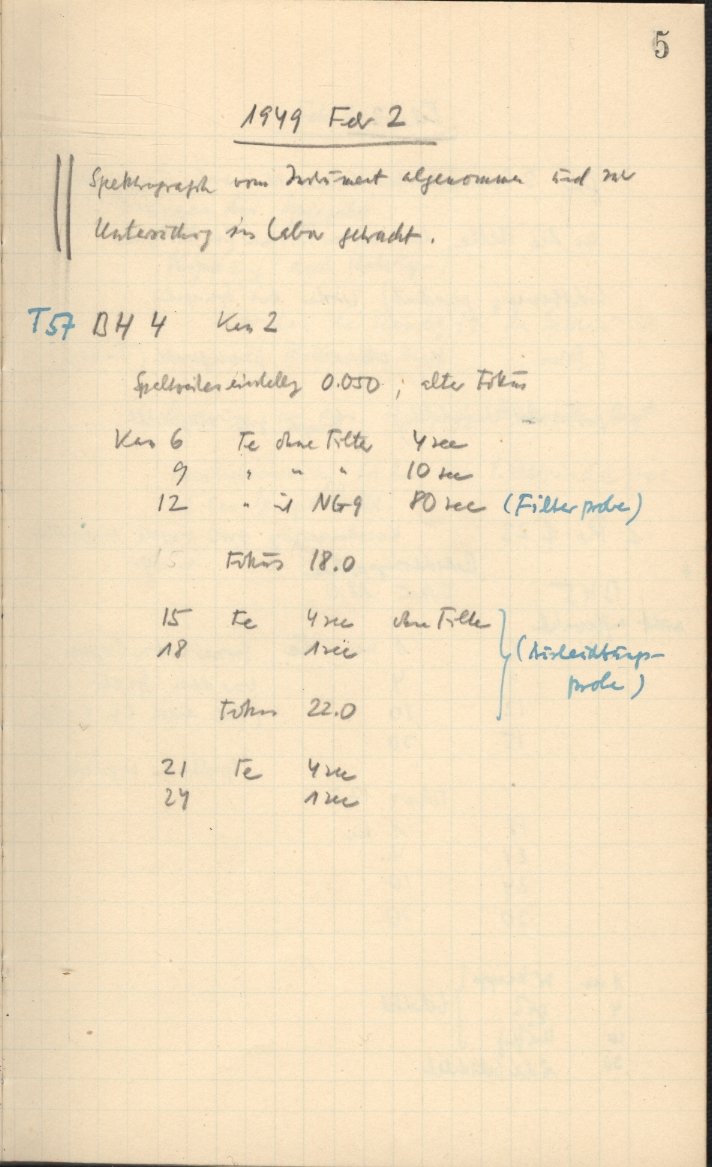 5
1949 Febr 2
Spektrograph vom Instrument abgenommen und zur
Untersuchung ins Labor gebracht.
T57 BH 4 Kas 2
Spaltweiteneinstellg 0.050 ; alter Fokus
Kas 6 Te ohne Filter 4 sec
9 " " " 10 sec
12 " mit NG9 80 sec (Filterprobe)
Fokus 18.0
15 Te 4 sec ohne Filter
18 1 sec
(Ausleuchtungs-
probe)
Fokus 22.0
21 Te 4 sec
24 1 sec